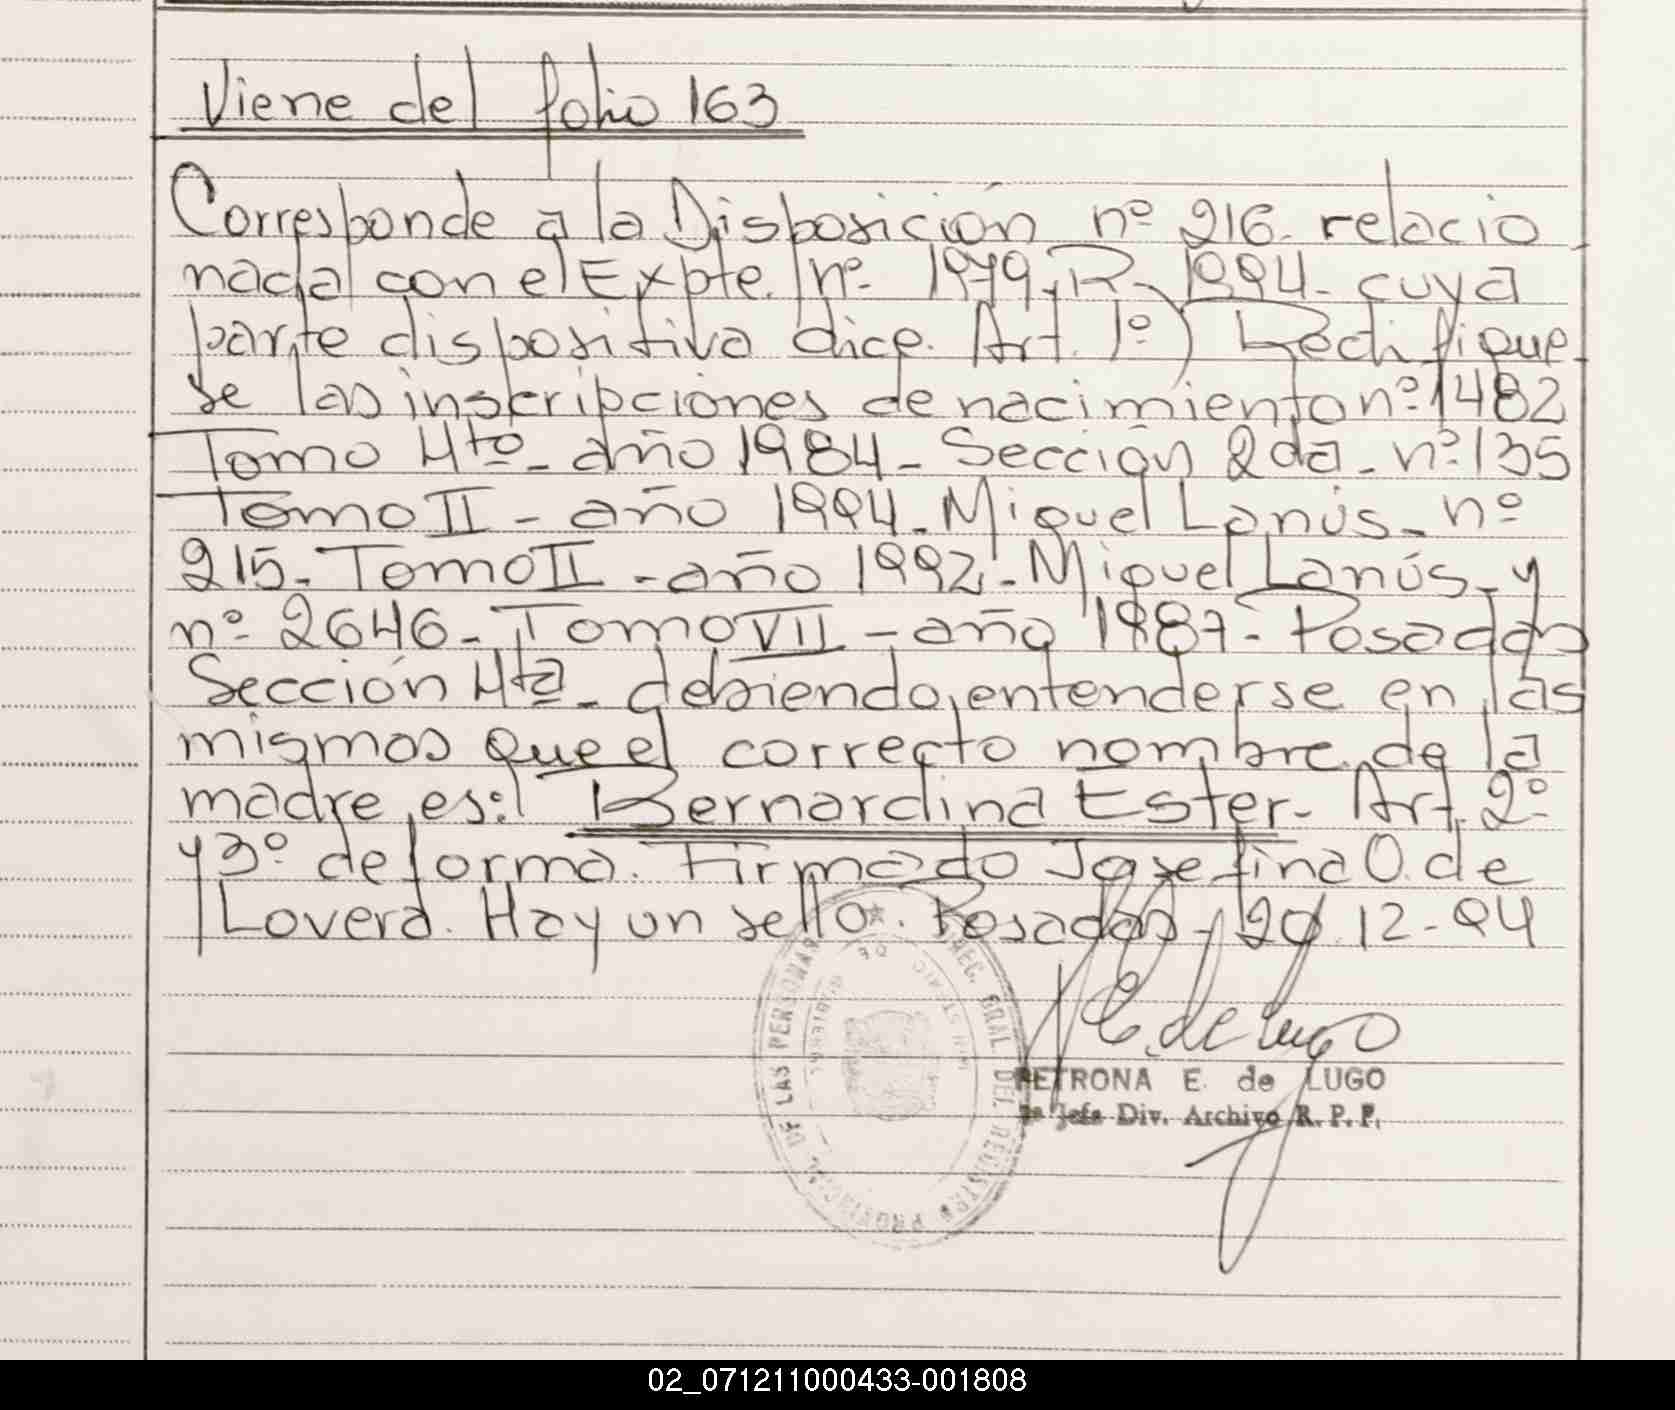 Viene del folio 163
Corresponde a la Disposición nº 216. relacio
nada con el Expte. nº 1979-R-1994- cuya
parte dispositiva dice. Art. 1º) Rectifique
se las inscripciones de nacimiento nº 1482
Tomo 4to- año 1984- Sección 2da- nº 135
Tomo II - año 1994- Miguel Lanús- nº
215- Tomo II - año 1992- Miguel Lanús- y
nº 2646- Tomo VII - año 1987- Posadas
Sección 4ta- debiendo entenderse en las
mismas que el correcto nombre de la
madre es: Bernardina Ester- Art. 2º
y 3º de forma. Firmado Josefina O. de
Lovera. Hay un sello. Posadas- 20.12-94
DIREC. GRAL. DEL REGISTRO PROVINCIAL DE LAS PERSONAS
E. de Lugo
PETRONA E. de LUGO
Jefe Div. Archivo R. P. P.
02_071211000433-001808